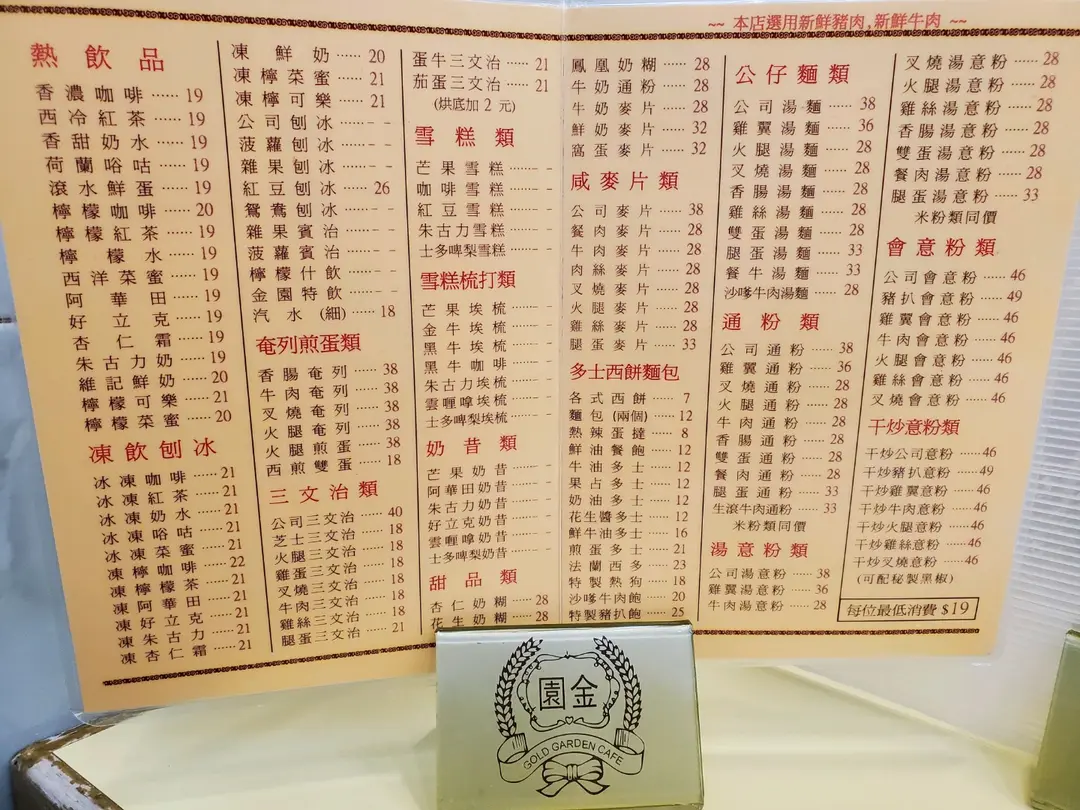 ~~ 本店選用新鮮豬肉,新鮮牛肉 ~~
熱飲品
香濃咖啡 ······ 19
西冷紅茶 ······ 19
香甜奶水 ······ 19
荷蘭唂咕 ······ 19
滾水鮮蛋 ······ 19
檸檬咖啡 ······ 20
檸檬紅茶 ······ 19
檸檬水 ······ 19
西洋菜蜜 ······ 19
阿華田 ······ 19
好立克 ······ 19
杏仁霜 ······ 19
朱古力奶 ······ 19
維記鮮奶 ······ 20
檸檬可樂 ······ 21
檸檬菜蜜 ······ 20
凍飲刨冰
冰凍咖啡 ······ 21
冰凍紅茶 ······ 21
冰凍奶水 ······ 21
冰凍唂咕 ······ 21
冰凍菜蜜 ······ 21
凍檸咖啡 ······ 22
凍檸檬茶 ······ 21
凍阿華田 ······ 21
凍好立克 ······ 21
凍朱古力 ······ 21
凍杏仁霜 ······ 21
凍鮮奶 ······ 20
凍檸菜蜜 ······ 21
凍檸可樂 ······ 21
公司刨冰 ······ – –
菠蘿刨冰 ······ – –
雜果刨冰 ······ – –
紅豆刨冰 ······ 26
鴛鴦刨冰 ······ – –
雜果賓治 ······ – –
菠蘿賓治 ······ – –
檸檬什飲 ······ – –
金園特飲 ······ – –
汽水(細) ······ 18
奄列煎蛋類
香腸奄列 ······ 38
牛肉奄列 ······ 38
叉燒奄列 ······ 38
火腿奄列 ······ 38
火腿煎蛋 ······ 38
西煎雙蛋 ······ 18
三文治類
公司三文治 ······ 40
芝士三文治 ······ 18
火腿三文治 ······ 18
雞蛋三文治 ······ 18
叉燒三文治 ······ 18
牛肉三文治 ······ 18
雞絲三文治 ······ 18
腿蛋三文治 ······ 21
蛋牛三文治 ······ 21
茄蛋三文治 ······ 21
(烘底加 2 元)
雪糕類
芒果雪糕 ······ –
咖啡雪糕 ······ –
紅豆雪糕 ······ –
朱古力雪糕 ······ –
士多啤梨雪糕 ······ –
雪糕梳打類
芒果埃梳 ······ –
金牛埃梳 ······ –
黑牛埃梳 ······ –
黑牛咖啡 ······ –
朱古力埃梳 ······ –
雲喱嗱埃梳 ······ –
士多啤梨埃梳 ······ –
奶昔類
芒果奶昔 ······ –
阿華田奶昔 ······ –
朱古力奶昔 ······ –
好立克奶昔 ······ –
雲喱嗱奶昔 ······ –
士多啤梨奶昔 ······ –
甜品類
杏仁奶糊 ······ 28
花生奶糊 ······ 28
鳳凰奶糊 ······ 28
牛奶通粉 ······ 28
牛奶麥片 ······ 28
鮮奶麥片 ······ 32
窩蛋麥片 ······ 32
咸麥片類
公司麥片 ······ 38
餐肉麥片 ······ 28
牛肉麥片 ······ 28
肉絲麥片 ······ 28
叉燒麥片 ······ 28
火腿麥片 ······ 28
雞絲麥片 ······ 28
腿蛋麥片 ······ 33
多士西餅麵包
各式西餅 ······ 7
麵包(兩個) ······ 12
熱辣蛋撻 ······ 8
鮮油餐飽 ······ 12
牛油多士 ······ 12
果占多士 ······ 12
奶油多士 ······ 12
花生醬多士 ······ 12
鮮牛油多士 ······ 16
煎蛋多士 ······ 21
法蘭西多 ······ 23
特製熱狗 ······ 18
沙嗲牛肉飽 ······ 20
特製豬扒飽 ······ 25
公仔麵類
公司湯麵 ······ 38
雞翼湯麵 ······ 36
火腿湯麵 ······ 28
叉燒湯麵 ······ 28
香腸湯麵 ······ 28
雞絲湯麵 ······ 28
雙蛋湯麵 ······ 28
腿蛋湯麵 ······ 33
餐牛湯麵 ······ 33
沙嗲牛肉湯麵 ······ 28
通粉類
公司通粉 ······ 38
雞翼通粉 ······ 36
叉燒通粉 ······ 28
火腿通粉 ······ 28
牛肉通粉 ······ 28
香腸通粉 ······ 28
雙蛋通粉 ······ 28
餐肉通粉 ······ 28
腿蛋通粉 ······ 33
生滾牛肉通粉 ······ 33
米粉類同價
湯意粉類
公司湯意粉 ······ 38
雞翼湯意粉 ······ 36
牛肉湯意粉 ······ 28
叉燒湯意粉 ······ 28
火腿湯意粉 ······ 28
雞絲湯意粉 ······ 28
香腸湯意粉 ······ 28
雙蛋湯意粉 ······ 28
餐肉湯意粉 ······ 28
腿蛋湯意粉 ······ 33
米粉類同價
會意粉類
公司會意粉 ······ 46
豬扒會意粉 ······ 49
雞翼會意粉 ······ 46
牛肉會意粉 ······ 46
火腿會意粉 ······ 46
雞絲會意粉 ······ 46
叉燒會意粉 ······ 46
干炒意粉類
干炒公司意粉 ······ 46
干炒豬扒意粉 ······ 49
干炒雞翼意粉 ······ 46
干炒牛肉意粉 ······ 46
干炒火腿意粉 ······ 46
干炒雞絲意粉 ······ 46
干炒叉燒意粉 ······ 46
(可配秘製黑椒)
每位最低消費 $19
園金
GOLD GARDEN CAFE